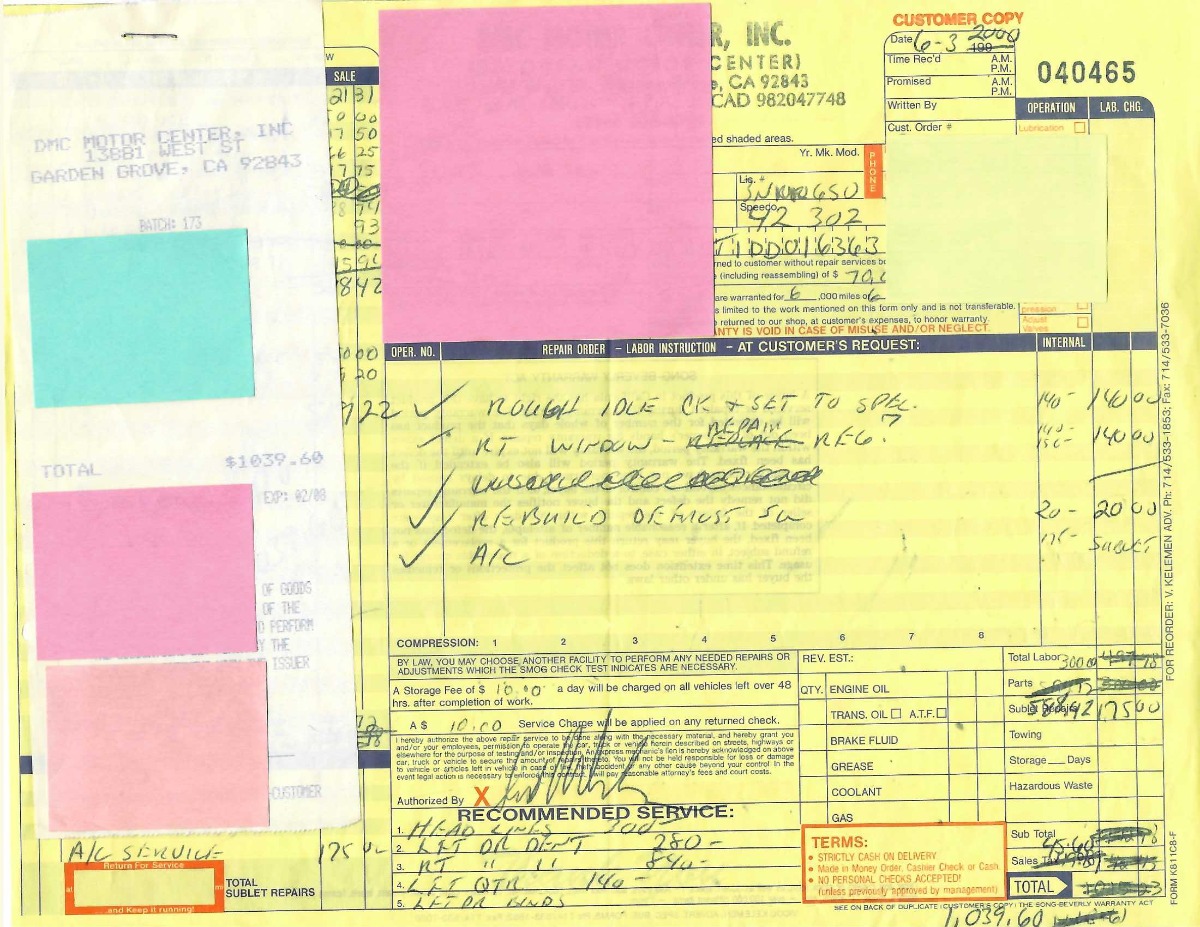 DMC MOTOR CENTER, INC
13881 WEST ST
GARDEN GROVE, CA 92843
BATCH: 173
TOTAL $1039.60
EXP: 02/08
OF GOODS
OF THE
PERFORM
THE
ISSUER
CUSTOMER
SALE
17 50
25
17 75
93
842
20
922
A/C SERVICE 175 00
Return For Service
at
and Keep it running!
TOTAL
SUBLET REPAIRS
R, INC.
CENTER)
, CA 92843
CAD 982047748
CUSTOMER COPY
Date 6-3 2000 199
Time Rec'd A.M.
P.M.
Promised A.M.
P.M.
Written By
Cust. Order #
040465
OPERATION LAB. CHG.
Lubrication
ed shaded areas.
Yr. Mk. Mod.
PHONE
Lic. #
Speedo.
42 302
T1DD016363
rned to customer without repair services be
(including reassembling) of $ 70.
are warranted for 6 ,000 miles or 6
s limited to the work mentioned on this form only and is not transferable.
e returned to our shop, at customer's expenses, to honor warranty.
NTY IS VOID IN CASE OF MISUSE AND/OR NEGLECT.
pression
Adjust
Valves
OPER. NO. REPAIR ORDER – LABOR INSTRUCTION – AT CUSTOMER'S REQUEST: INTERNAL
ROUGH IDLE CK + SET TO SPEC. 140- 140 00
RT WINDOW - REPAIR REPLACE REG. 140- 140 00
REBUILD DEFROST SW 20- 20 00
A/C 175- SUBLET
COMPRESSION: 1 2 3 4 5 6 7 8
BY LAW, YOU MAY CHOOSE ANOTHER FACILITY TO PERFORM ANY NEEDED REPAIRS OR
ADJUSTMENTS WHICH THE SMOG CHECK TEST INDICATES ARE NECESSARY.
A Storage Fee of $ 10.00 a day will be charged on all vehicles left over 48
hrs. after completion of work.
A $ 10.00 Service Charge will be applied on any returned check.
I hereby authorize the above repair service to be done along with the necessary material, and hereby grant you
and/or your employees, permission to operate the car, truck or vehicle herein described on streets, highways or
elsewhere for the purpose of testing and/or inspection. An express mechanic's lien is hereby acknowledged on above
car, truck or vehicle to secure the amount of repairs thereto. You will not be held responsible for loss or damage
to vehicle or articles left in vehicle in case of fire, theft, accident or any other cause beyond your control. In the
event legal action is necessary to enforce this contract, I will pay reasonable attorney's fees and court costs.
Authorized By X
RECOMMENDED SERVICE:
1. HEAD LINES 300-
2. LFT DR DENT 280-
3. RT " " 840-
4. LFT QTR 140-
5. LFT DR BINDS
REV. EST.:
QTY. ENGINE OIL
TRANS. OIL A.T.F.
BRAKE FLUID
GREASE
COOLANT
GAS
Total Labor 300.00
Parts
Sublet Repairs 175 00
Towing
Storage Days
Hazardous Waste
Sub Total
Sales Tax
TOTAL
1,039.60
TERMS:
• STRICTLY CASH ON DELIVERY
• Made in Money Order, Cashier Check or Cash
• NO PERSONAL CHECKS ACCEPTED!
(unless previously approved by management)
SEE ON BACK OF DUPLICATE (CUSTOMER'S COPY) THE SONG-BEVERLY WARRANTY ACT
FOR REORDER: V. KELEMEN ADV. Ph: 714/533-1853; Fax: 714/533-7036
FORM K811C8-F